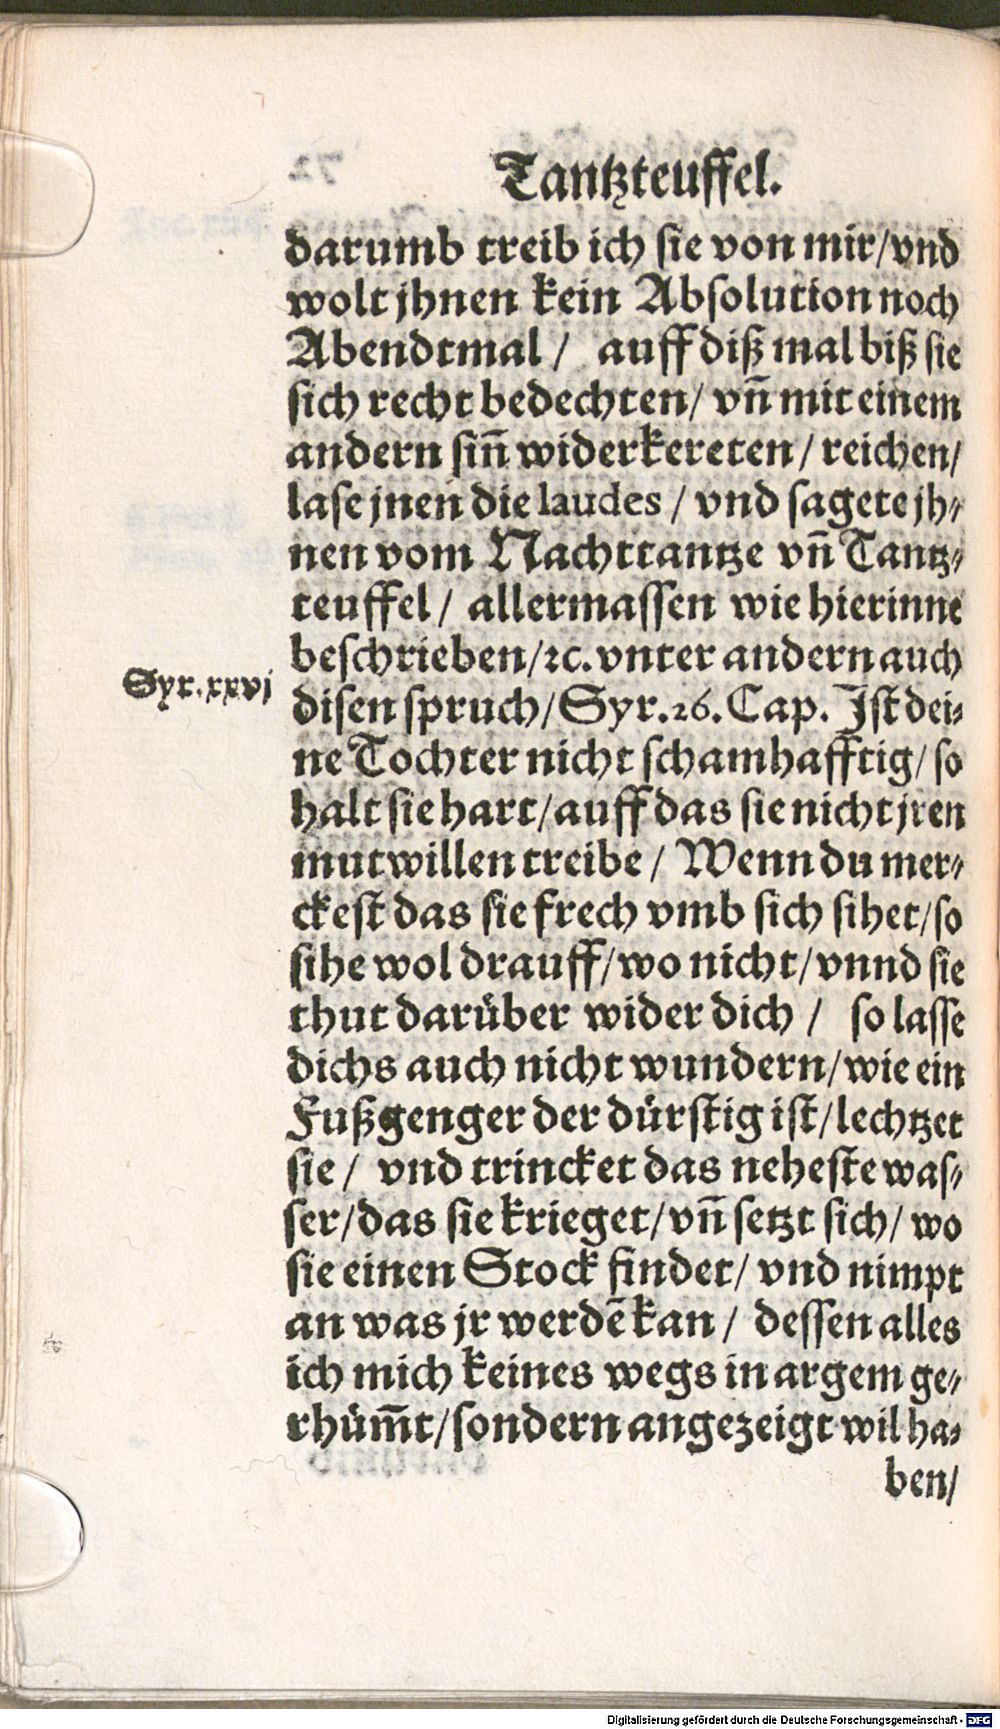 Tantzteuffel.
darumb treib ich sie von mir/vnd
wolt jhnen kein Absolution noch
Abendtmal / auff diß mal biß sie
sich recht bedechten/ vñ mit einem
andern siñ widerkereten / reichen/
lase jnen die laudes / vnd sagete jh-
nen vom Nachttantze vñ Tantz-
teuffel / allermassen wie hierinne
beschrieben/ꝛc. vnter andern auch
Syr. xxvj
disen spruch/Syr. 26. Cap. Ist dei-
ne Tochter nicht schamhafftig/ so
halt sie hart/auff das sie nicht jren
mutwillen treibe / Wenn du mer-
ckest das sie frech vmb sich sihet/so
sihe wol drauff/wo nicht/vnnd sie
thut darüber wider dich / so lasse
dichs auch nicht wundern/wie ein
Fußgenger der dürstig ist/lechtzet
sie / vnd trincket das neheste was-
ser/das sie krieget/vñ setzt sich/ wo
sie einen Stock findet/ vnd nimpt
an was jr werdē kan / dessen alles
ich mich keines wegs in argem ge-
rhüm̃t/sondern angezeigt wil ha-
ben/
Digitalisierung gefördert durch die Deutsche Forschungsgemeinschaft - DFG